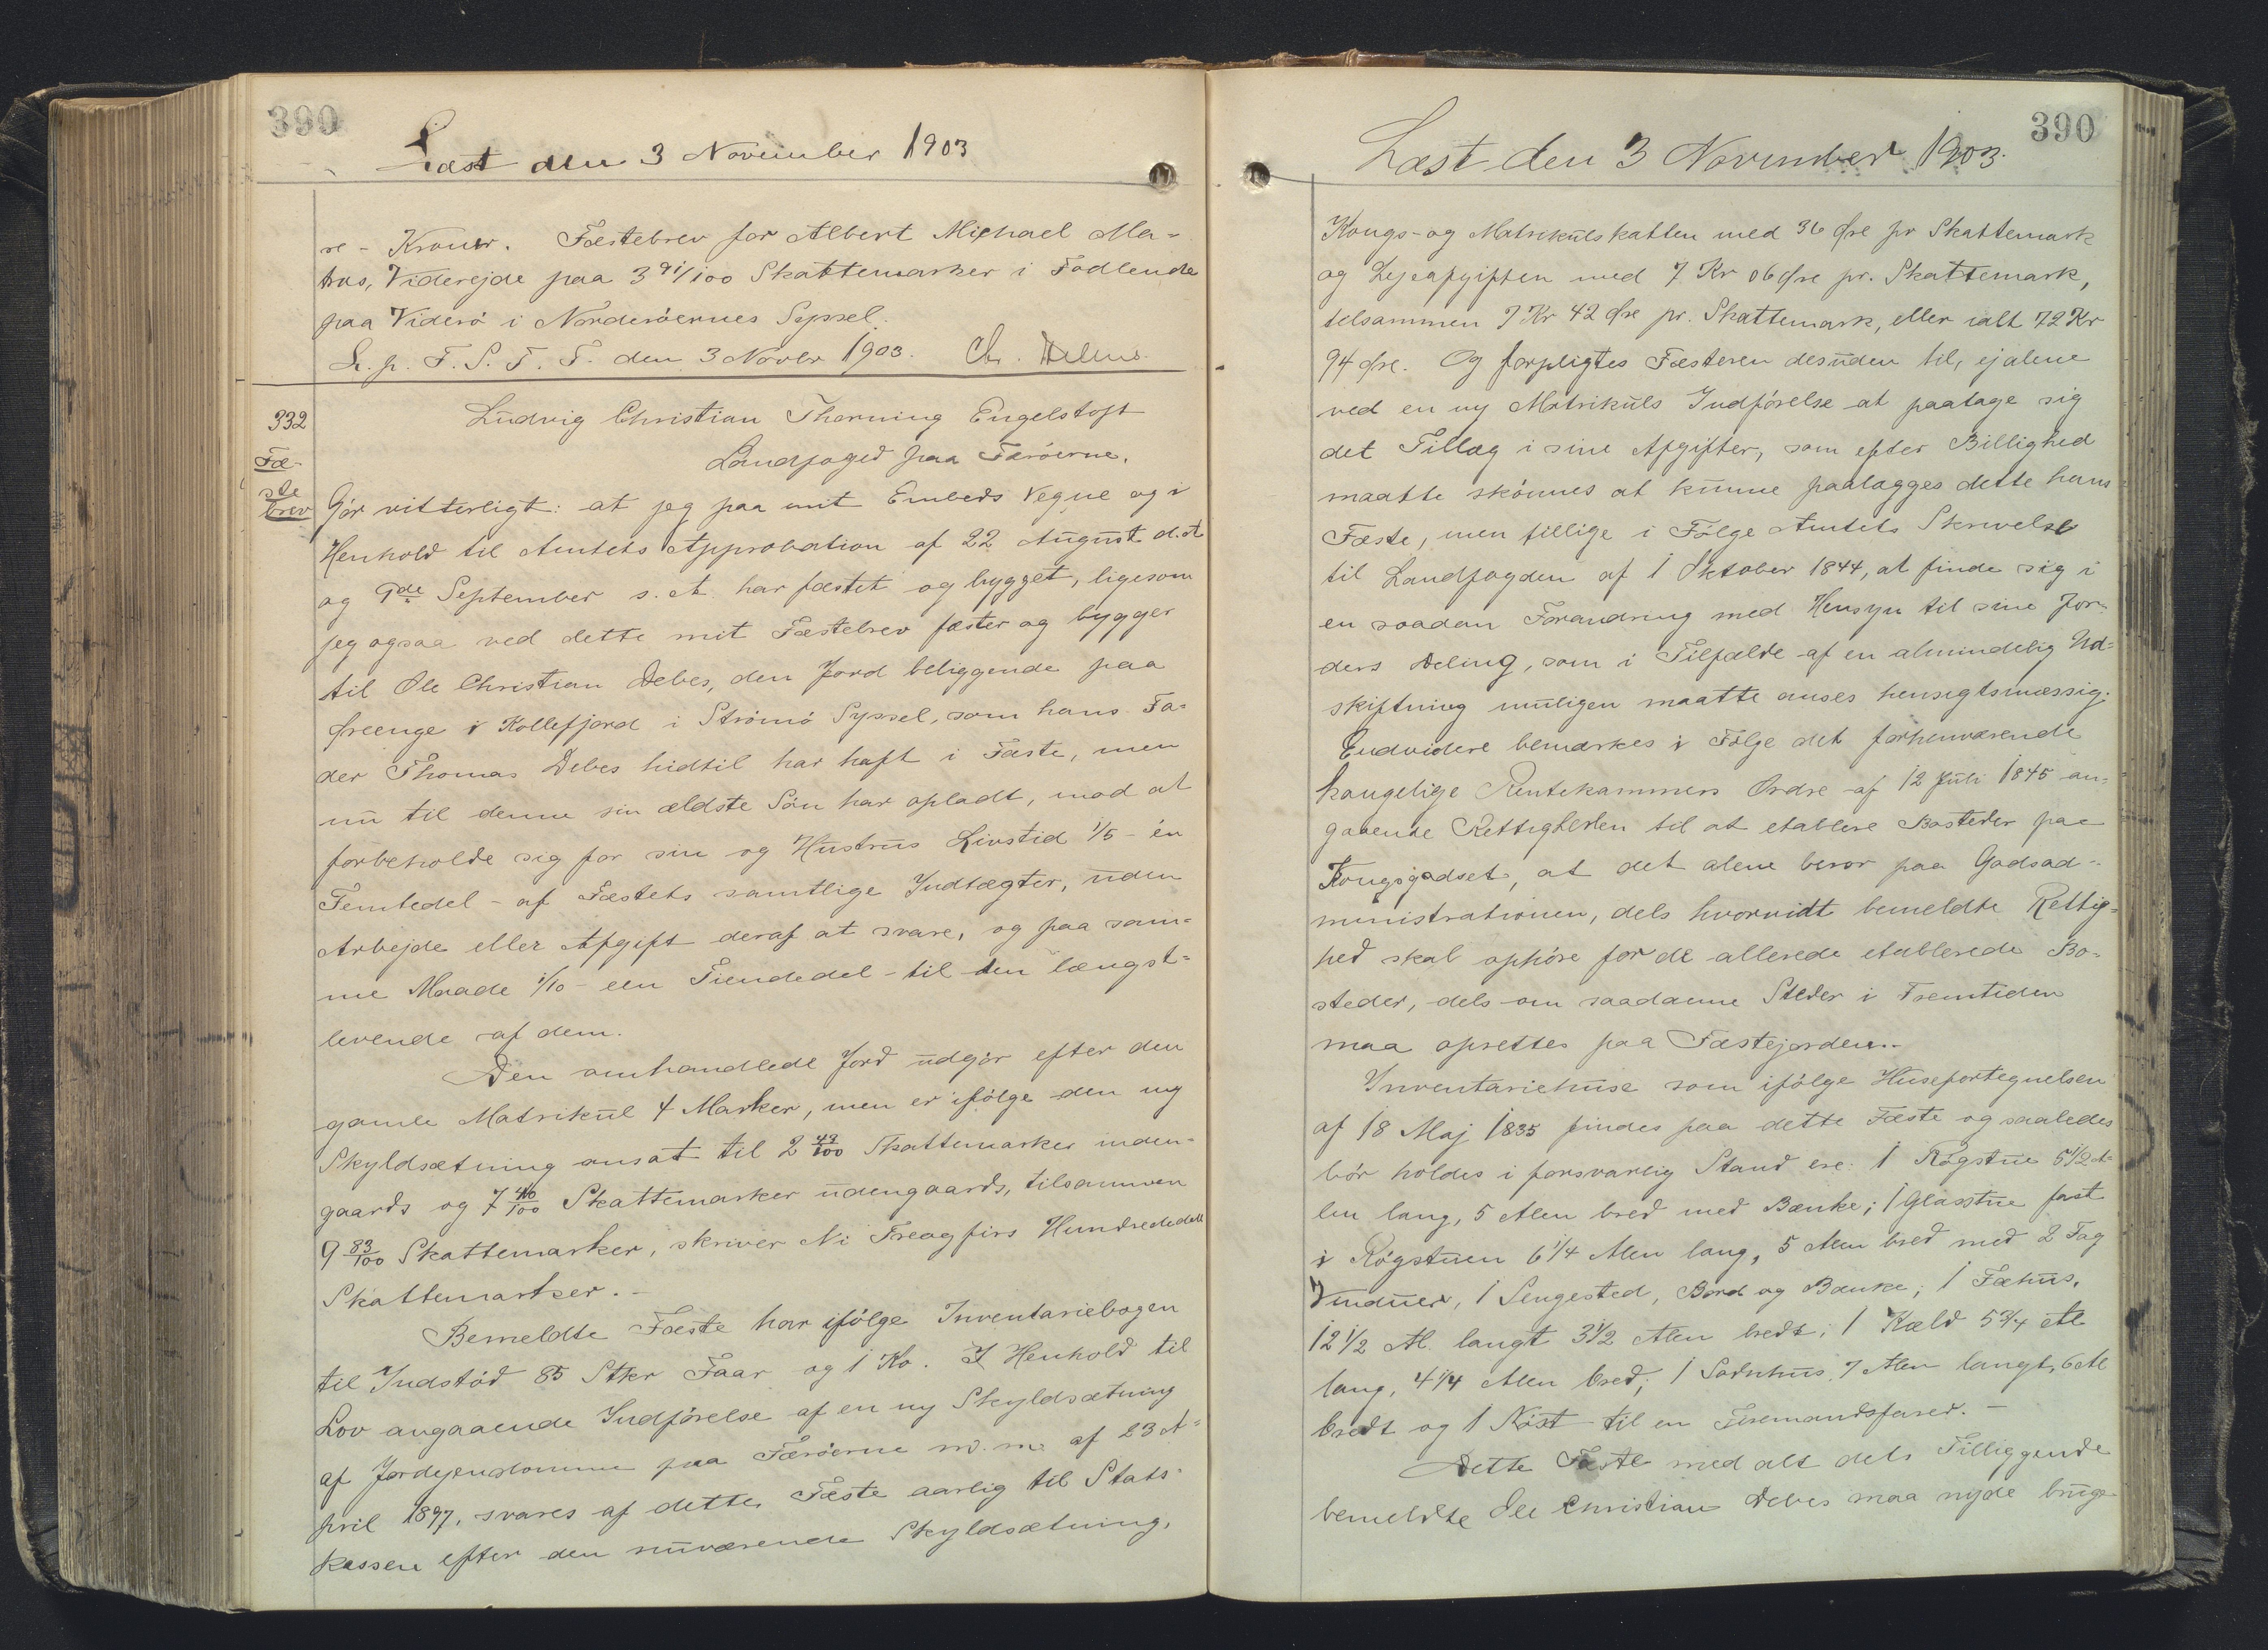 390
Læst den 3 November 1903
re - Kroner. Fæstebrev for Albert Michael Ma-
tras, Viderejde paa 3 91/100 Skattemarker i Fodlende
paa Viderö i Norderöernes Syssel.
L. p. F. S. T. F. den 3 Novbr 1903. Chr.
332
Fæ-
ste
brev
Ludvig Christian Thorning Engelstoft
Landfoged paa Færöerne.
Gör vitterligt: at jeg paa mit Embeds Vegne og i
Henhold til Amtets Approbation af 22 August d. A
og 9de September s. A. har fæstet og bygget, ligesom
jeg ogsaa ved dette mit Fæstebrev fæster og bygger
til Ole Christian Debes, den Jord beliggende paa
Øreenge i Kollefjord i Strömö Syssel, som hans Fa-
der Thomas Debes hidtil har haft i Fæste, men
nu til denne sin ældste Sön har opladt, mod at
forbeholde sig for sin og Hustrus Livstid 1/5 - én
Femtedel - af Fæstets samtlige Indtægter, uden
Arbejde eller Afgift deraf at svare, og paa sam-
me Maade 1/10 - een Tiendedel - til den længst-
levende af dem.
Den omhandlede Jord udgör efter den
gamle Matrikul 4 Marker, men er ifölge den ny
Skyldsætning ansat til 2 43/100 Skattemarker inden-
gaards og 7 40/100 Skattemarker udengaards, tilsammen
9 83/100 Skattemarker, skriver Ni Treogfirs Hundrededele
Skattemarker. -
Bemeldte Fæste har ifölge Inventariebogen
til Indstöd 85 Stkr Faar og 1 Ko. I Henhold til
Lov angaaende Indförelse af en ny Skyldsætning
af Jordejendomme paa Færöerne m. m. af 23 A-
pril 1897, svares af dette Fæste aarlig til Stats-
kassen efter den nuværende Skyldsætning,
390
Læst den 3 November 1903.
Kongs- og Matrikulskatten med 36 Øre pr Skattemark
og Lejeafgiften med 7 Kr 06 Øre pr. Skattemark,
tilsammen 7 Kr 42 Øre pr. Skattemark, eller ialt 72 Kr
94 Øre. Og forpligtes Fæsteren desuden til, ej alene
ved en ny Matrikuls Indförelse at paatage sig
det Tillæg i sine Afgifter, som efter Billighed
maatte skönnes at kunne paalægges dette hans
Fæste, men tillige i Fölge Amtets Skrivelse
til Landfogden af 1 Oktober 1844, at finde sig i
en saadan Forandring med Hensyn til sine Jor-
ders Deling, som i Tilfælde af en almindelig Ud-
skiftning muligen maatte anses hensigtsmæssig.
Endvidere bemærkes i Fölge det forhenværende
kongelige Rentekammers Ordre af 12 Juli 1845 an-
gaaende Rettigheden til at etablere Bosteder paa
Kongsgodset, at det alene beror paa Godsad-
ministrationen, dels hvorvidt bemeldte Rettig-
hed skal ophöre for de allerede etablerede Bo-
steder, dels om saadanne Steder i Fremtiden
maa oprettes paa Fæstejorden.-
Inventariehuse som ifölge Husefortegnelsen
af 18 Maj 1835 findes paa dette Fæste og saaledes
bör holdes i forsvarlig Stand ere: 1 Rögstue 5 1/2 A-
len lang, 5 Alen bred med Bænke; 1 Glasstue fast
i Røgstuen 6 1/4 Alen lang, 5 Alen bred med 2 Fag
Vinduer, 1 Sengested, Bord og Bænke; 1 Fæhus,
12 1/2 Al. langt 3 1/2 Alen bredt; 1 Kæld 5 3/4 Al
lang, 4 1/4 Alen bred; 1 Sodnhus 7 Alen langt, 6 Al
bredt og 1 Nöst til en Firemandsfarer. -
Dette Fæste med alt dets Tilliggende
bemeldte Ole Christian Debes maa nyde bruge